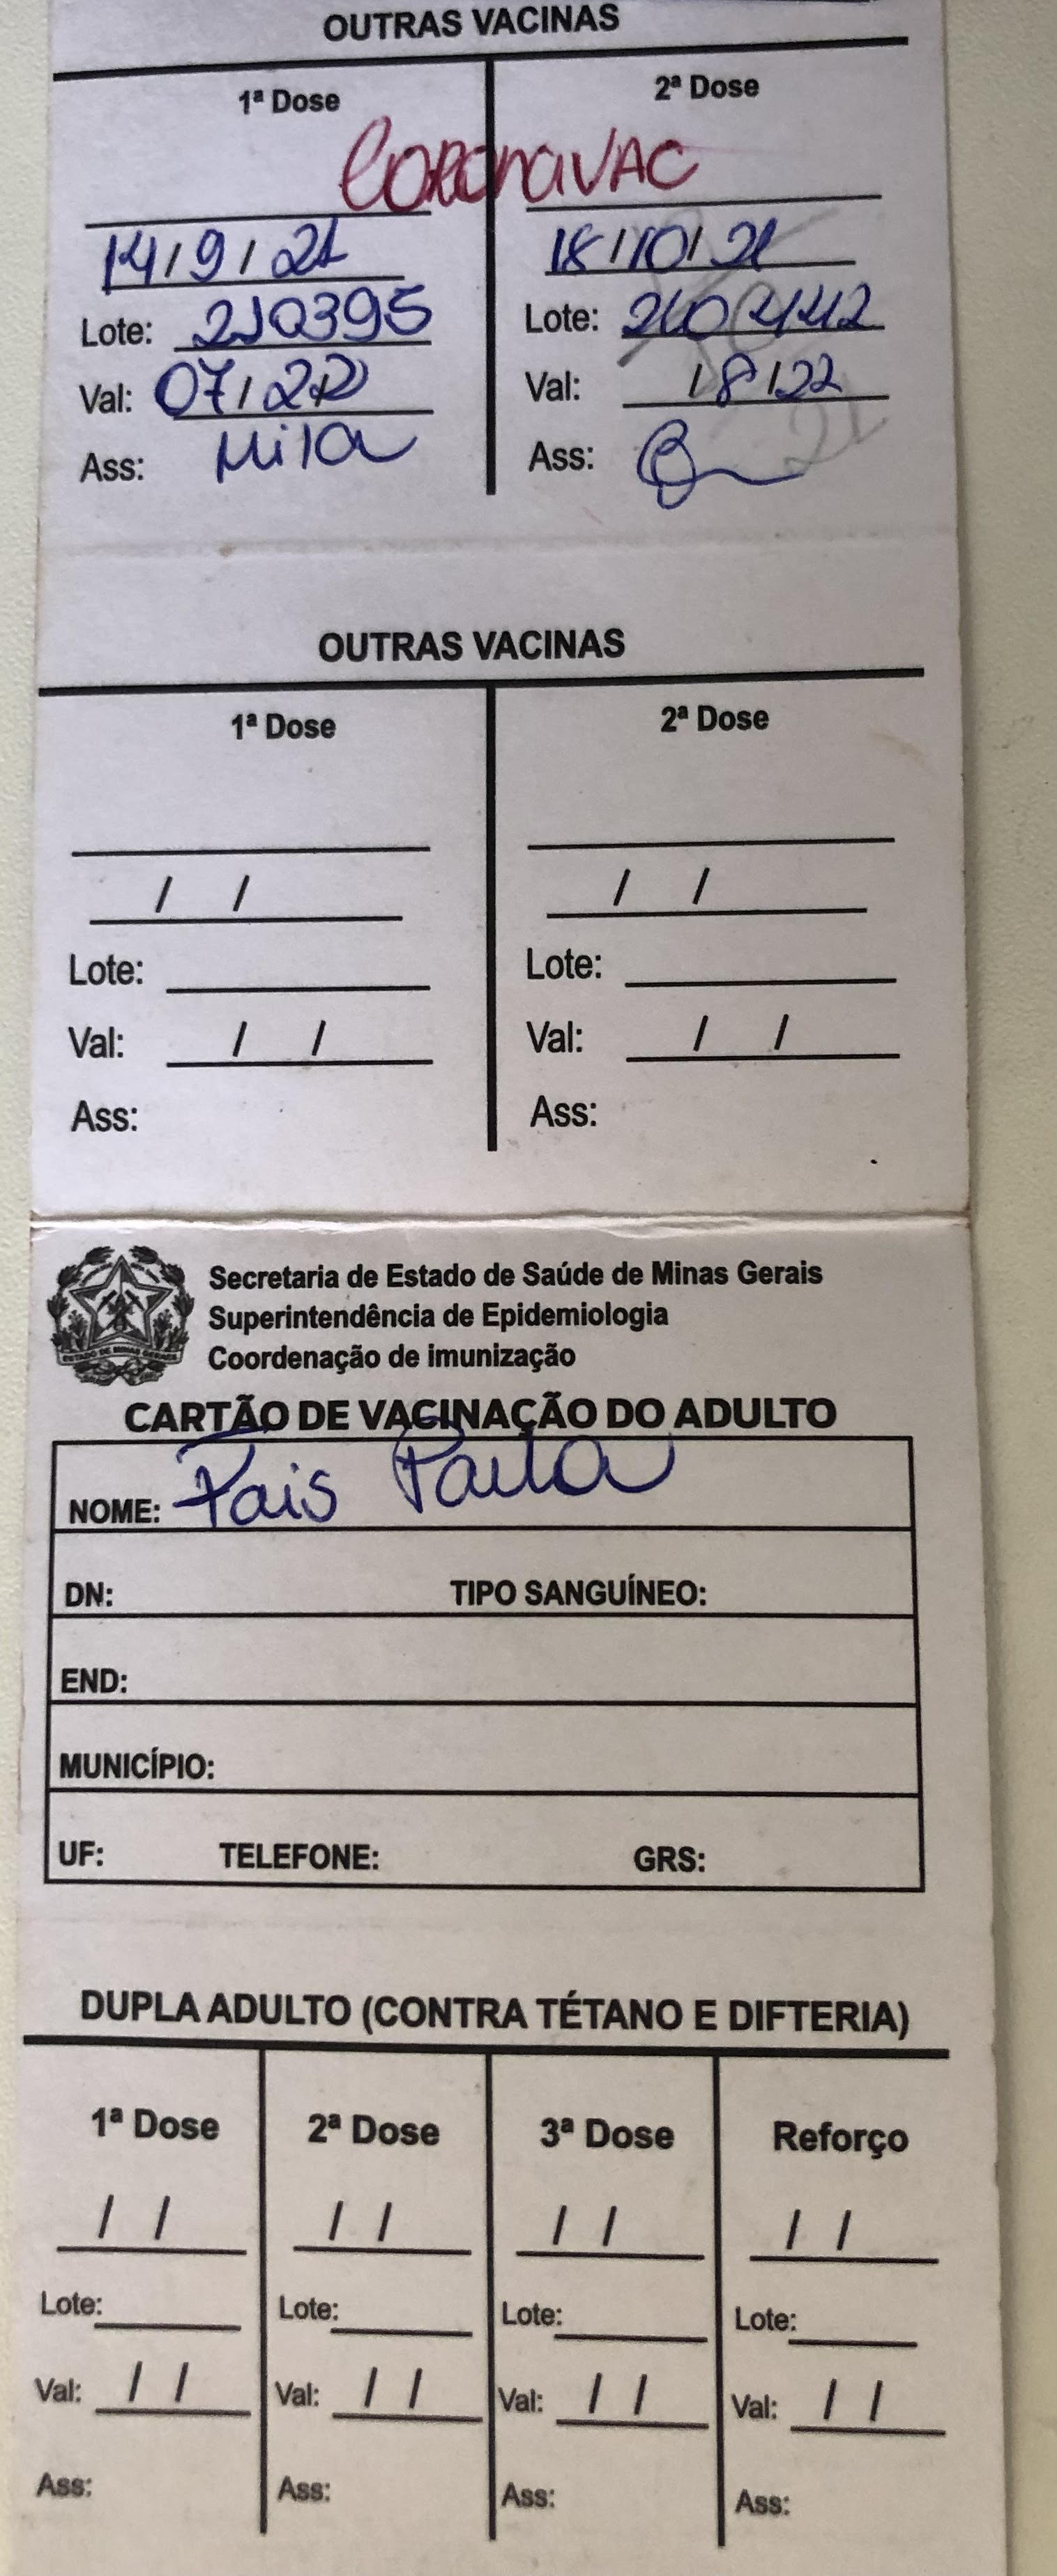 OUTRAS VACINAS
1ª Dose 2ª Dose
CORONAVAC
14/9/21 18/10/21
Lote: 210395 Lote:
Val: 07/22 Val: /8/22
Ass: Mila Ass:
OUTRAS VACINAS
1ª Dose 2ª Dose
/ / / /
Lote: Lote:
Val: / / Val: / /
Ass: Ass:
ESTADO DE MINAS GERAIS
Secretaria de Estado de Saúde de Minas Gerais
Superintendência de Epidemiologia
Coordenação de imunização
CARTÃO DE VACINAÇÃO DO ADULTO
NOME: Tais Paula
DN: TIPO SANGUÍNEO:
END:
MUNICÍPIO:
UF: TELEFONE: GRS:
DUPLA ADULTO (CONTRA TÉTANO E DIFTERIA)
1ª Dose 2ª Dose 3ª Dose Reforço
/ / / / / / / /
Lote: Lote: Lote: Lote:
Val: / / Val: / / Val: / / Val: / /
Ass: Ass: Ass: Ass: